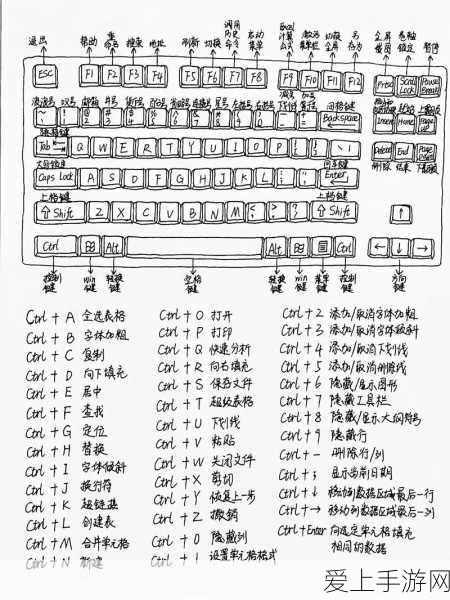 退出 帮助 重命名 搜索 地址 刷新 切换 启动菜单 切换全屏 另存为 全屏截图 卷轴锁定 暂停
ESC F1 F2 F3 F4 F5 F6 F7 F8 F9 F10 F11 F12 Scroll Lock Pause
Backspace Insert Home Page up
Tab Q W E R T Y U I O P Delete End Page down
删除 结束
大写锁定
Caps Lock A S D F G H J K L Enter
上档键 上档键
Shift Z X C V B N M Shift ↑
Ctrl Alt Alt Ctrl ← ↓ →
控制键 win键 转换键 空格键 转换键 win键 菜单键 控制键 方向键
Ctrl + A 全选表格
Ctrl + B 字体加粗
Ctrl + C 复制
Ctrl + D 向下填充
Ctrl + E 居中
Ctrl + F 查找
Ctrl + G 定位
Ctrl + H 替换
Ctrl + I 字体倾斜
Ctrl + J 换行符
Ctrl + K 超链接
Ctrl + L 创建表
Ctrl + M 合并单元格
Ctrl + N 新建
Ctrl + O 打开
Ctrl + P 打印
Ctrl + Q 快速分析
Ctrl + R 向右填充
Ctrl + S 保存文件
Ctrl + T 超级表格
Ctrl + U 下划线
Ctrl + V 粘贴
Ctrl + W 关闭文件
Ctrl + X 剪切
Ctrl + Y 恢复上一步
Ctrl + Z 撤销
Ctrl + 0 隐藏列
Ctrl + 1 设置单元格格式
Ctrl + 2 添加/取消字体加粗
Ctrl + 3 添加/取消字体倾斜
Ctrl + 4 添加/取消下划线
Ctrl + 5 添加/取消删除线
Ctrl + 6 隐藏/显示图形
Ctrl + 7 隐藏工具栏
Ctrl + 8 隐藏/显示大纲符号
Ctrl + 9 隐藏行
Ctrl + - 删除行/列
Ctrl + ; 显示当前日期
Ctrl + ↓ 移动到数据区域最后一行
Ctrl + → 移动到数据区域最后一列
Ctrl+Enter 向选定单元格填充
相同的数据
爱上手游网